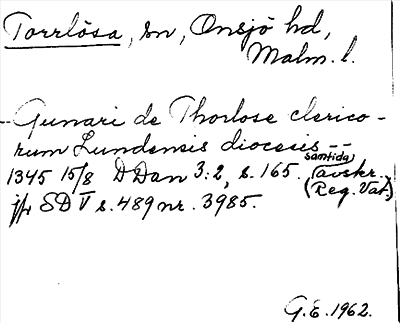 Torrlösa, sn, Onsjö hd,
Malm. l.
--Gunari de Thorlose clerico-
rum Lundensis diocesis --
1345 15/8 DDan 3:2, s. 165. samtida avskr.
(Reg. Vat.)
jfr SD V s. 489 nr. 3985.
G.E. 1962.